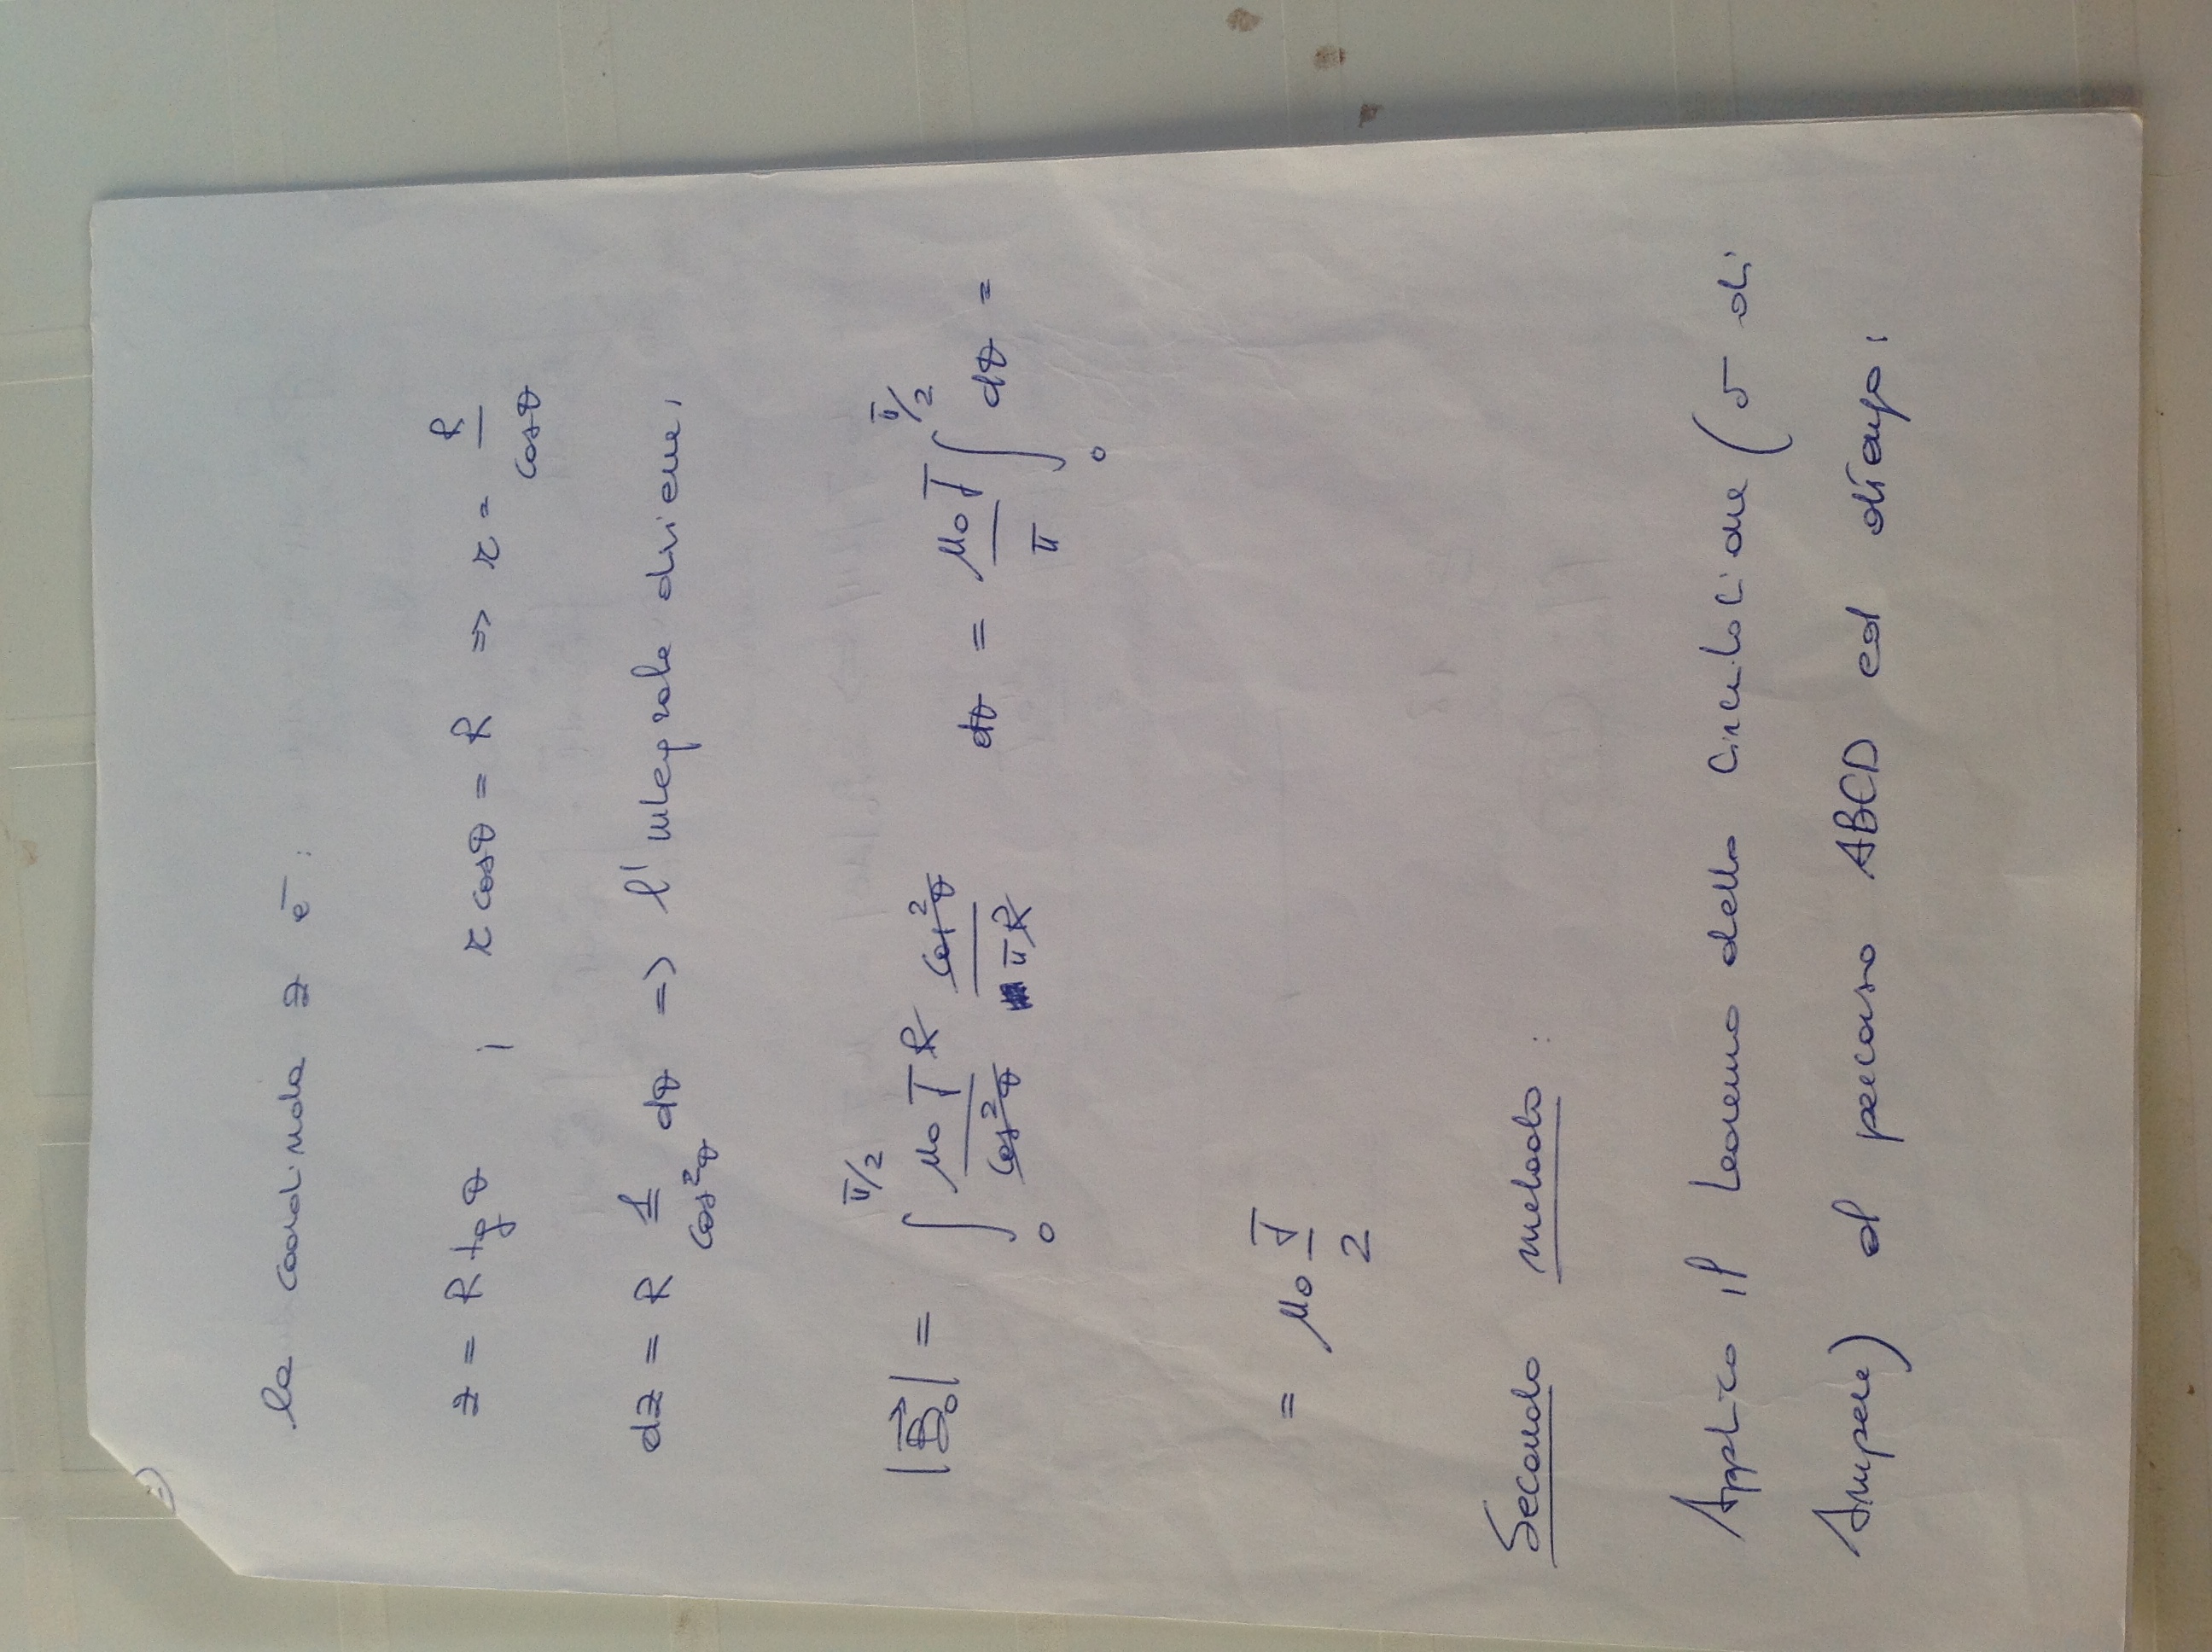 la coordinata z è:
z = R tg θ ; r cosθ = R => r = R/cosθ
dz = R 1/cos²θ dθ => l'integrale diviene,
|B⃗₀| = ∫₀^π/2 μ₀ J R/cos²θ cos²θ/πR dθ = μ₀ J/π ∫₀^π/2 dθ =
= μ₀ J/2
Secondo metodo:
Applico il teorema della circuitazione (o di
Ampere) al percorso ABCD ed ottengo: